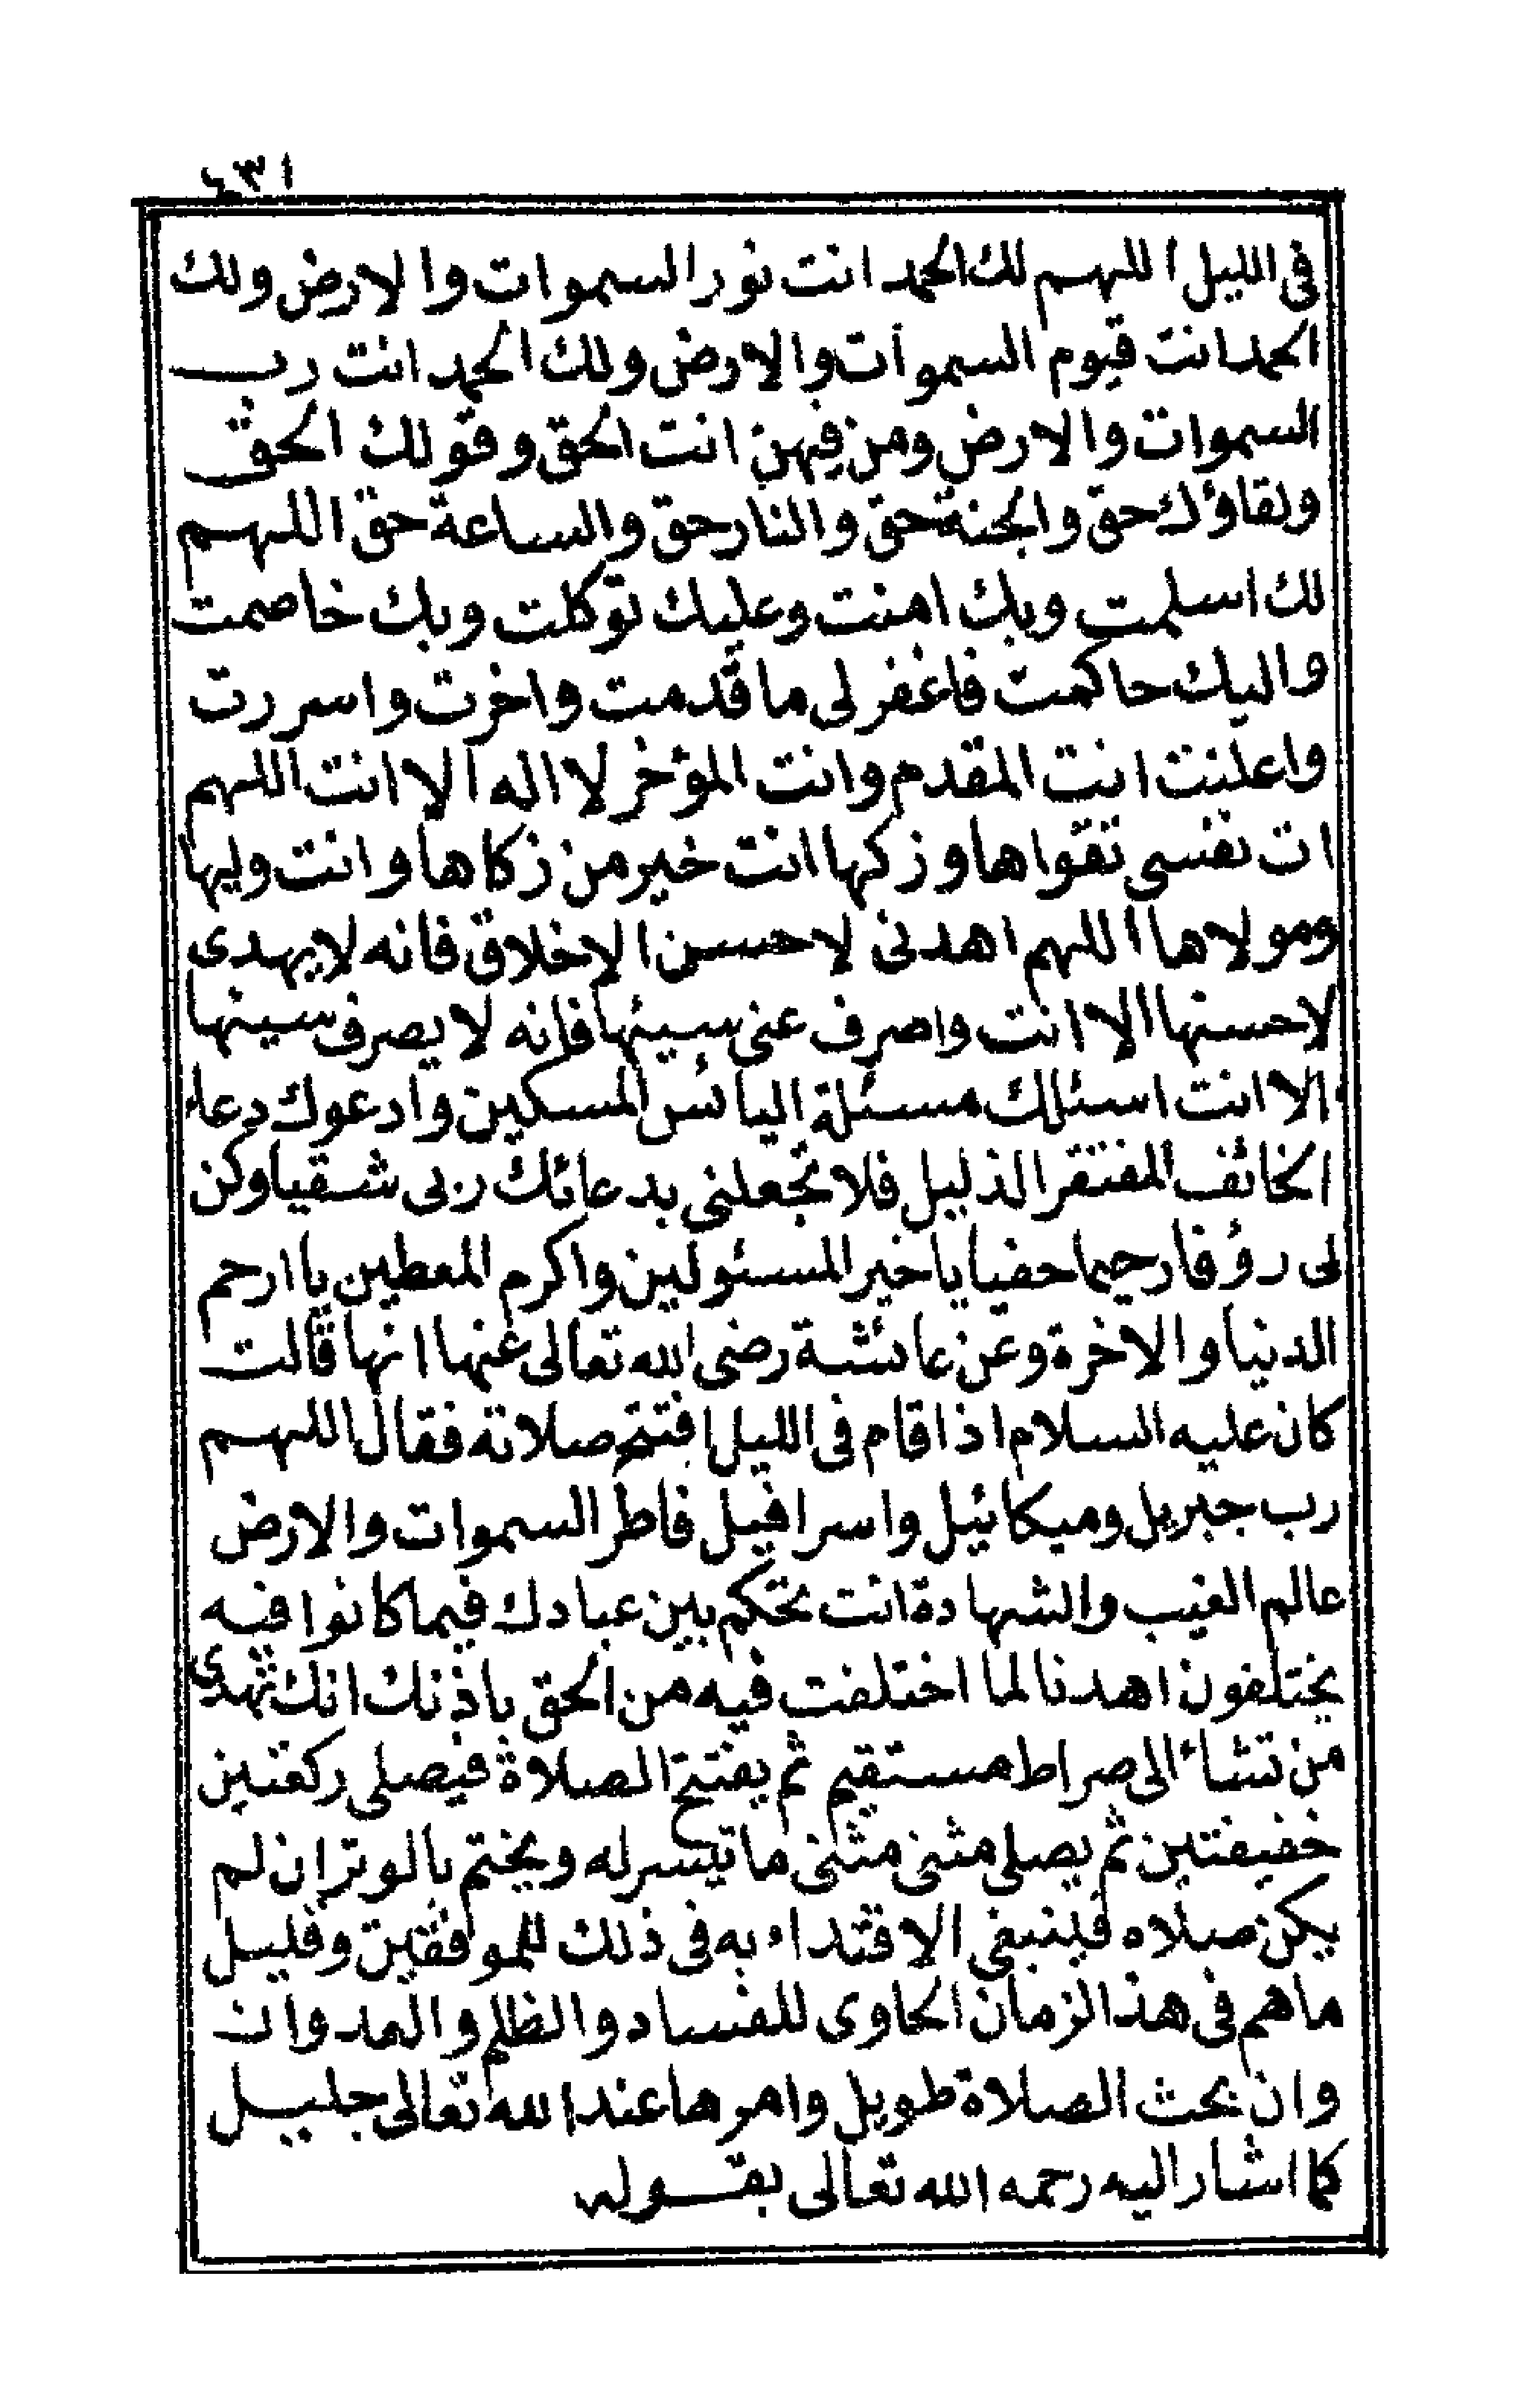 ١٣٤
فى الليل اللهم لك الحمد انت نور السموات والارض ولك
الحمد انت قيوم السموات والارض ولك الحمد انت رب
السموات والارض ومن فيهن انت الحق وقولك الحق
ولقاؤك حق والجنة حق والنار حق والساعة حق اللهم
لك اسلمت وبك امنت وعليك توكلت وبك خاصمت
واليك حاكمت فاغفر لى ما قدمت واخرت واسررت
واعلنت انت المقدم وانت المؤخر لا اله الا انت اللهم
ات نفسى تقواها وزكها انت خير من زكاها وانت وليها
ومولاها اللهم اهدنى لاحسن الاخلاق فانه لا يهدى
لاحسنها الا انت واصرف عنى سيئها فانه لا يصرف سيئها
الا انت اسئلك مسئلة البائس المسكين وادعوك دعاء
الخائف المفتقر الذليل فلا تجعلنى بدعائك ربى شقيا وكن
لى رؤفا رحيما حفيا يا خير المسئولين واكرم المعطين يا ارحم
الدنيا والاخرة وعن عائشة رضى الله تعالى عنها انها قالت
كان عليه السلام اذا قام فى الليل افتتح صلاته فقال اللهم
رب جبريل وميكائيل واسرافيل فاطر السموات والارض
عالم الغيب والشهادة انت تحكم بين عبادك فيما كانوا فيه
يختلفون اهدنا لما اختلفت فيه من الحق باذنك انك تهدى
من تشاء الى صراط مستقيم ثم يفتتح الصلاة فيصلى ركعتين
خفيفتين ثم يصلى مثنى مثنى ما تيسر له ويختم بالوتر ان لم
يكن صلاه فينبغى الاقتداء به فى ذلك للموفقين وقليل
ما هم فى هذا الزمان الحاوى للفساد والظلم والعدوان
وان بحث الصلاة طويل وامرها عند الله تعالى جليل
كما اشار اليه رحمه الله تعالى بقوله